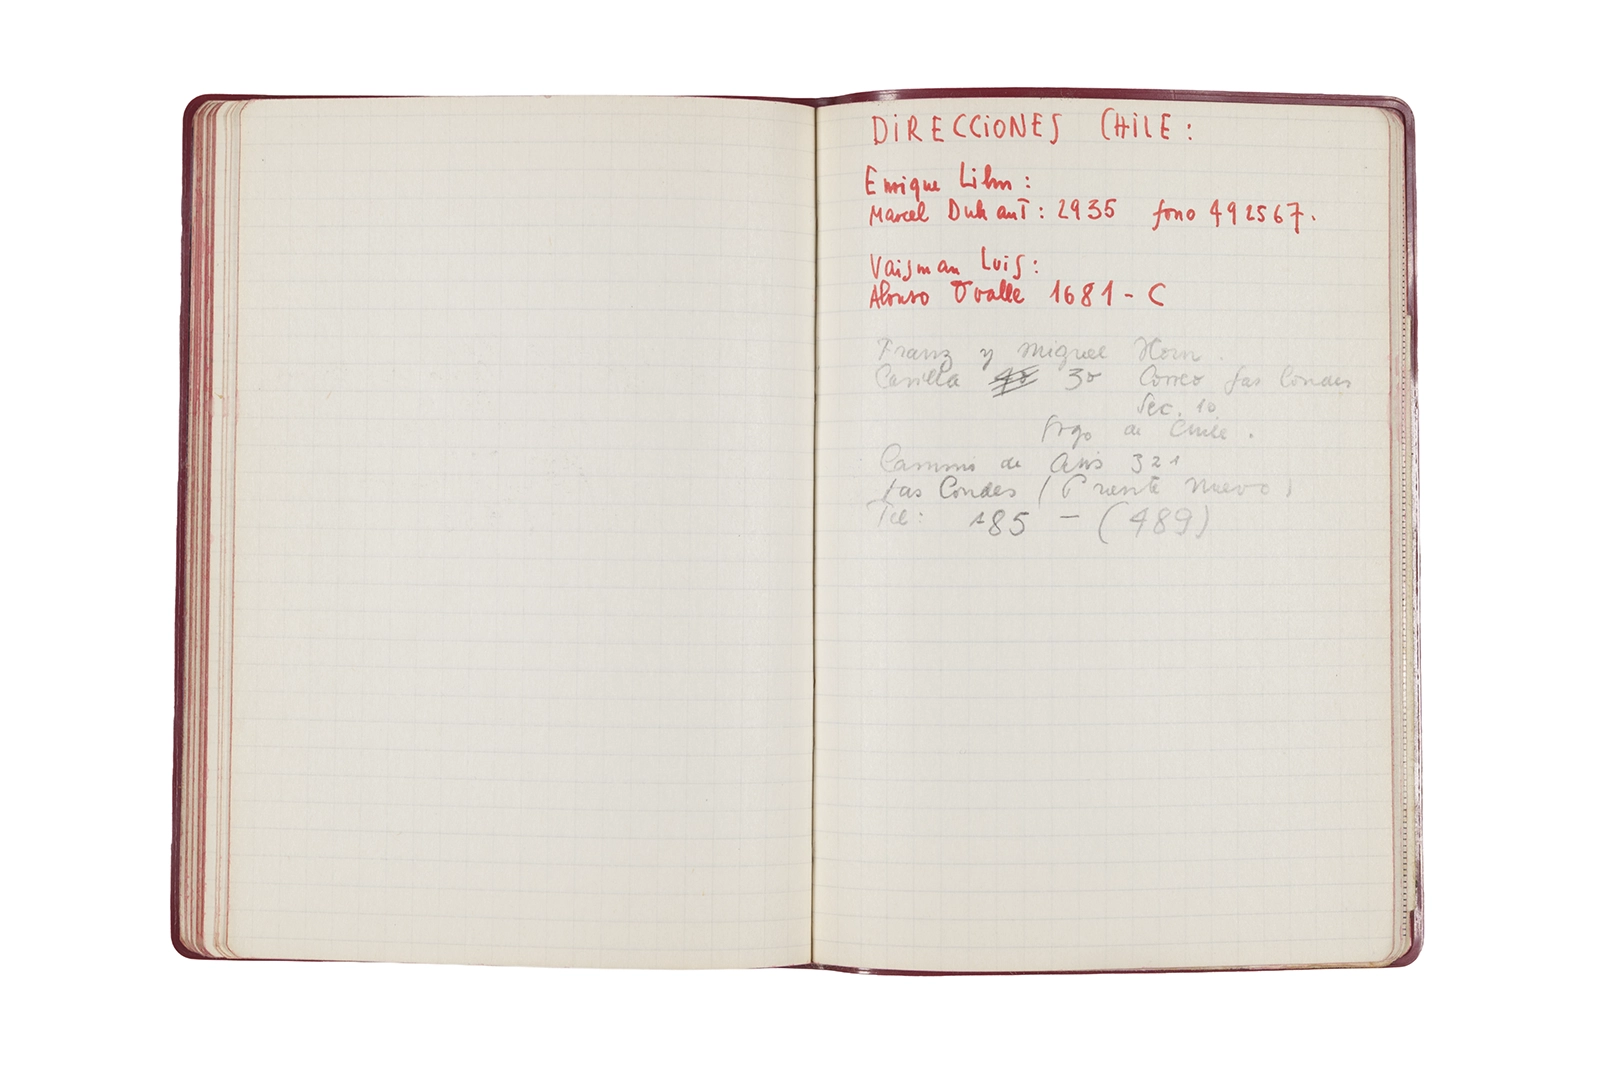 DIRECCIONES CHILE:
Enrique Lihn:
Marcel Duhaut: 2935 fono 492567.
Vaisman Luis:
Alonso Ovalle 1681-C
Franz y Miguel Horn.
Casilla 30 Correo Las Condes
Sec. 10
Stgo de Chile.
Camino de Asis 321
Las Condes (Puente Nuevo)
Tel: 185 - (489)